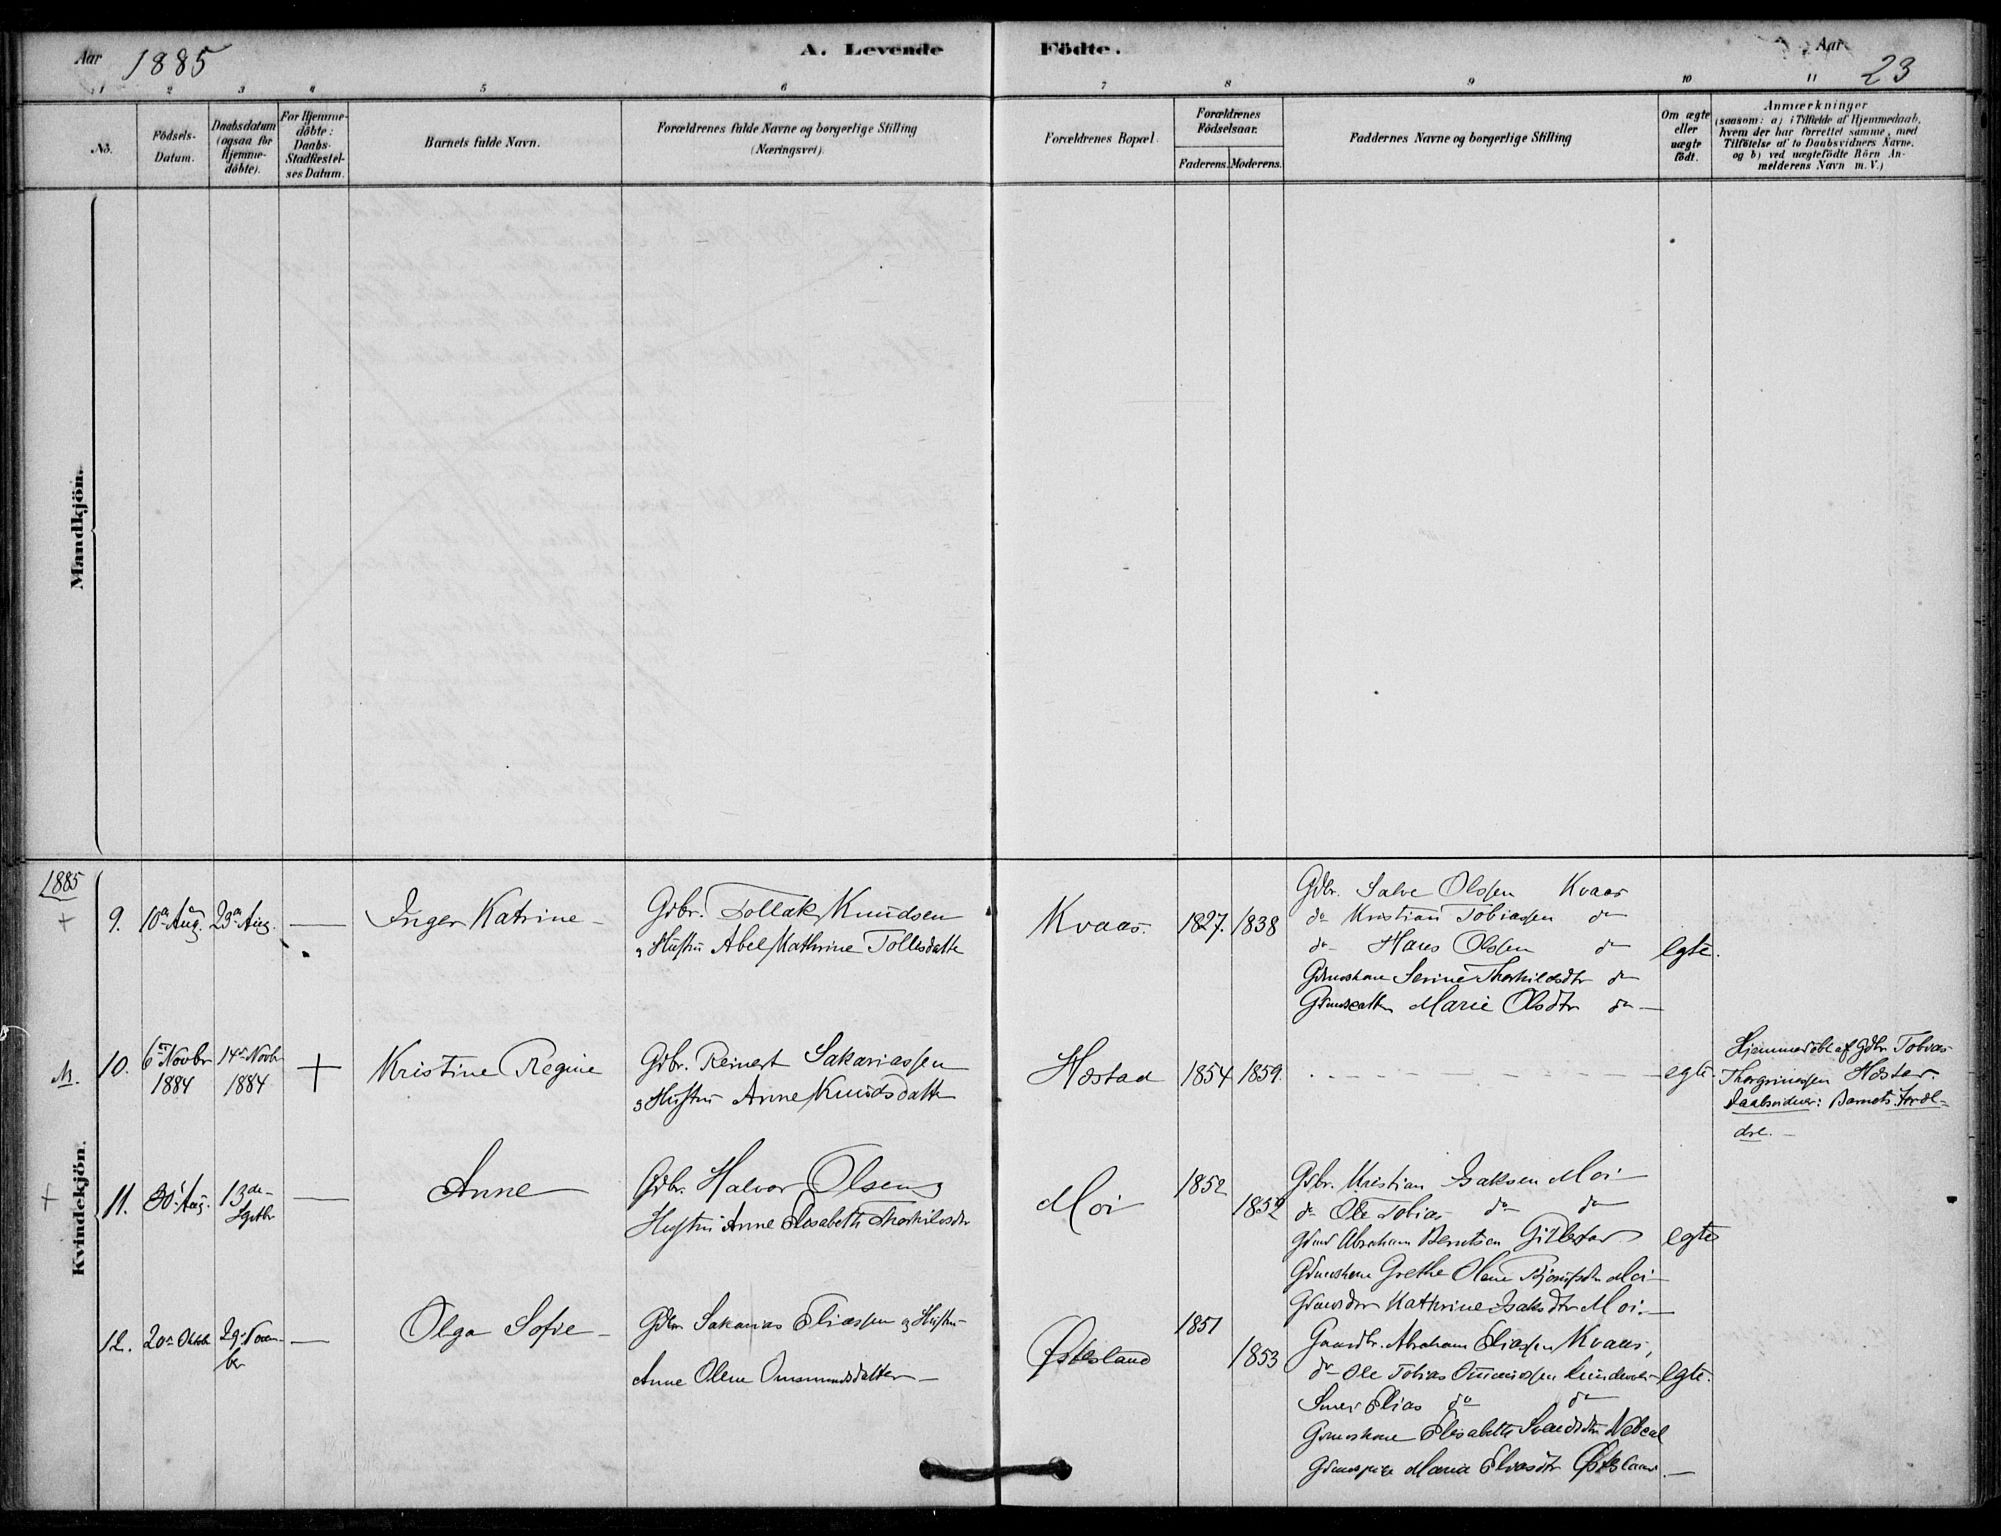 Aar 1885
A. Levende Födte.
Aar 23
1 2 3 4 5 6 7 8 9 10 11
No.
Födsels-Datum.
Daabsdatum (ogsaa for Hjemmedöbte).
For Hjemmedöbte: Daabs-Stadfæstelses Datum.
Barnets fulde Navn.
Forældrenes fulde Navne og borgerlige Stilling (Næringsvei).
Forældrenes Bopæl.
Forældrenes Födselsaar.
Faderens. Moderens.
Faddernes Navne og borgerlige Stilling
Om ægte eller uægte födt.
Anmærkninger
(saasom: a) i Tilfælde af Hjemmedaab,
hvem der har forrettet samme, med
Tilföielse af to Daabsvidners Navne.
og b) ved uægtefödte Börn An-
melderens Navn m. V.)
Mandkjön.
Kvindekjön.
1885
9. 10de Aug. 23de Aug. — Inger Katrine —
Gdbr. Tollak Knudsen
og Hustru Abel Kathrine Tollesdatter
Kvaas. 1827. 1838
Gdbr. Salve Olssen Kvaas
do Kristian Tobiassen do
do Hans Olssen do
Gdmskone Serine Thorkildsdtr do
Marie Olsdtr do —
egte.
10. 6te Novbr 1884 14de Novbr 1884 + Kristine Regine
Gdbr. Reinert Sakariassen
og Hustru Anne Knudsdatter
Hæstad 1854 1859.
egte.
Hjemmedøbt af Gdbr. Tobias
Thorgrimssen Hæstad.
Daabsvidner: Barnets Foræl-
dre. —
11. 30. Aug. 13de Septbr — Anne
Gdbr. Halvor Olsen og
Hustru Anne Elisabeth Thorkildsdtr
Moi 1852 1852
Gdbr. Kristian Isaksen Moi
do Ole Tobias do do
Abraham Berntsen Gitlestad
Gdmskone Grethe Olene Moi
Kathrine Isaksdtr Moi. —
egte
12. 20de Oktob. 29. Novem-
ber — Olga Sofie —
Gdbr Sakarias Eliassen og Hustru
Anne Olene Omsmundsdatter —
Østesland 1851 1853
Gaardbr. Abraham Eliassen Kvaas,
do Ole Tobias
Elias do do
Gdmskone Elisabeth
Maria Eliasdtr —
egte.